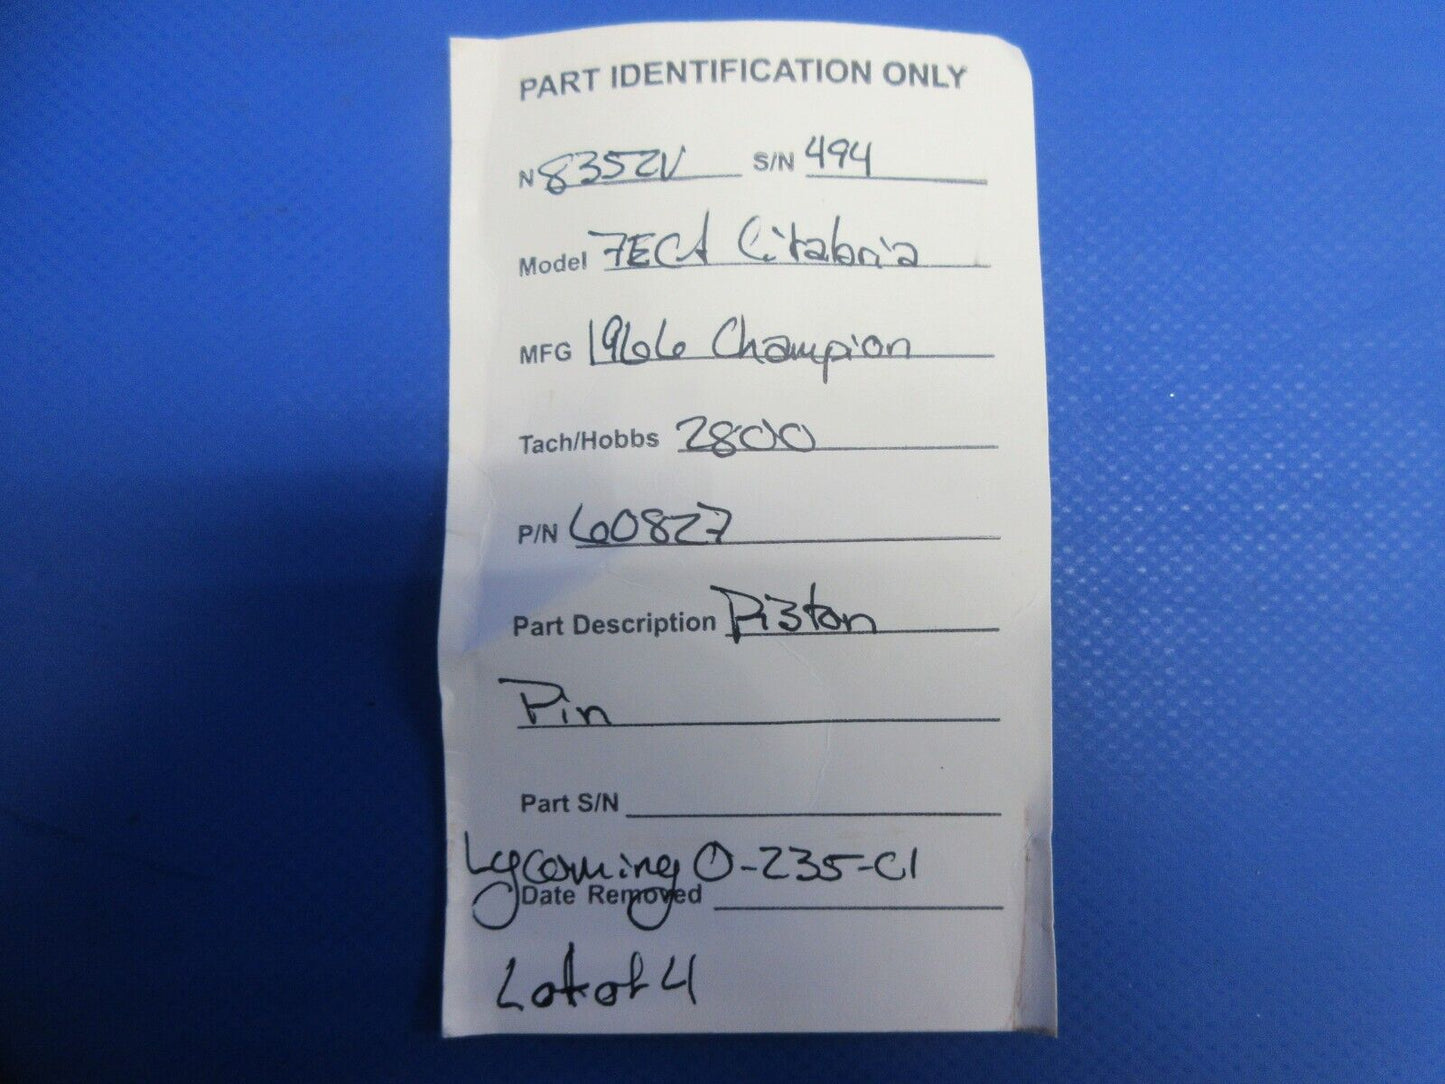 PART IDENTIFICATION ONLY
N 8352V S/N 494
Model 7ECA Citabria
MFG 1966 Champion
Tach/Hobbs 2800
P/N 60827
Part Description Piston
Pin
Part S/N
Lycoming O-235-C1
Date Removed
Lot of 4